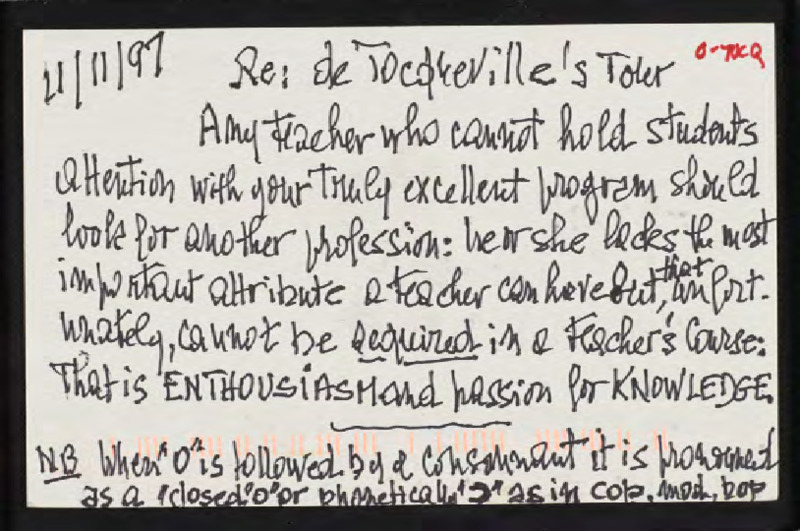 11/11/97 Re: de Tocqueville's Tour O-TOCQ
Any teacher who cannot hold students
attention with your truly excellent program should
look for another profession: he or she lacks the most
important attribute a teacher can have but, that unfort-
unately, cannot be acquired in a teacher's course:
That is ENTHOUSIASM and passion for KNOWLEDGE.
NB When "O" is followed by a consonnant it is pronounced
as a "closed" o" or phonetically "ɔ" as in cop, mod, bop